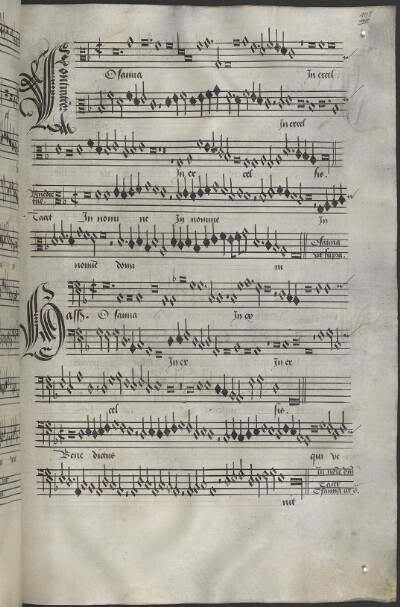 Osanna In excel
in excel
In ex cel sis.
Benedic
tus.
Tacet In nomi ne In nomine In
Osanna
ut supra.
nomine domi ni
Bass. Osanna In ex
In ex In ex
cel sis.
Bene dictus qui ve
in noie dni
Tacet
Osanna ut s.
nit